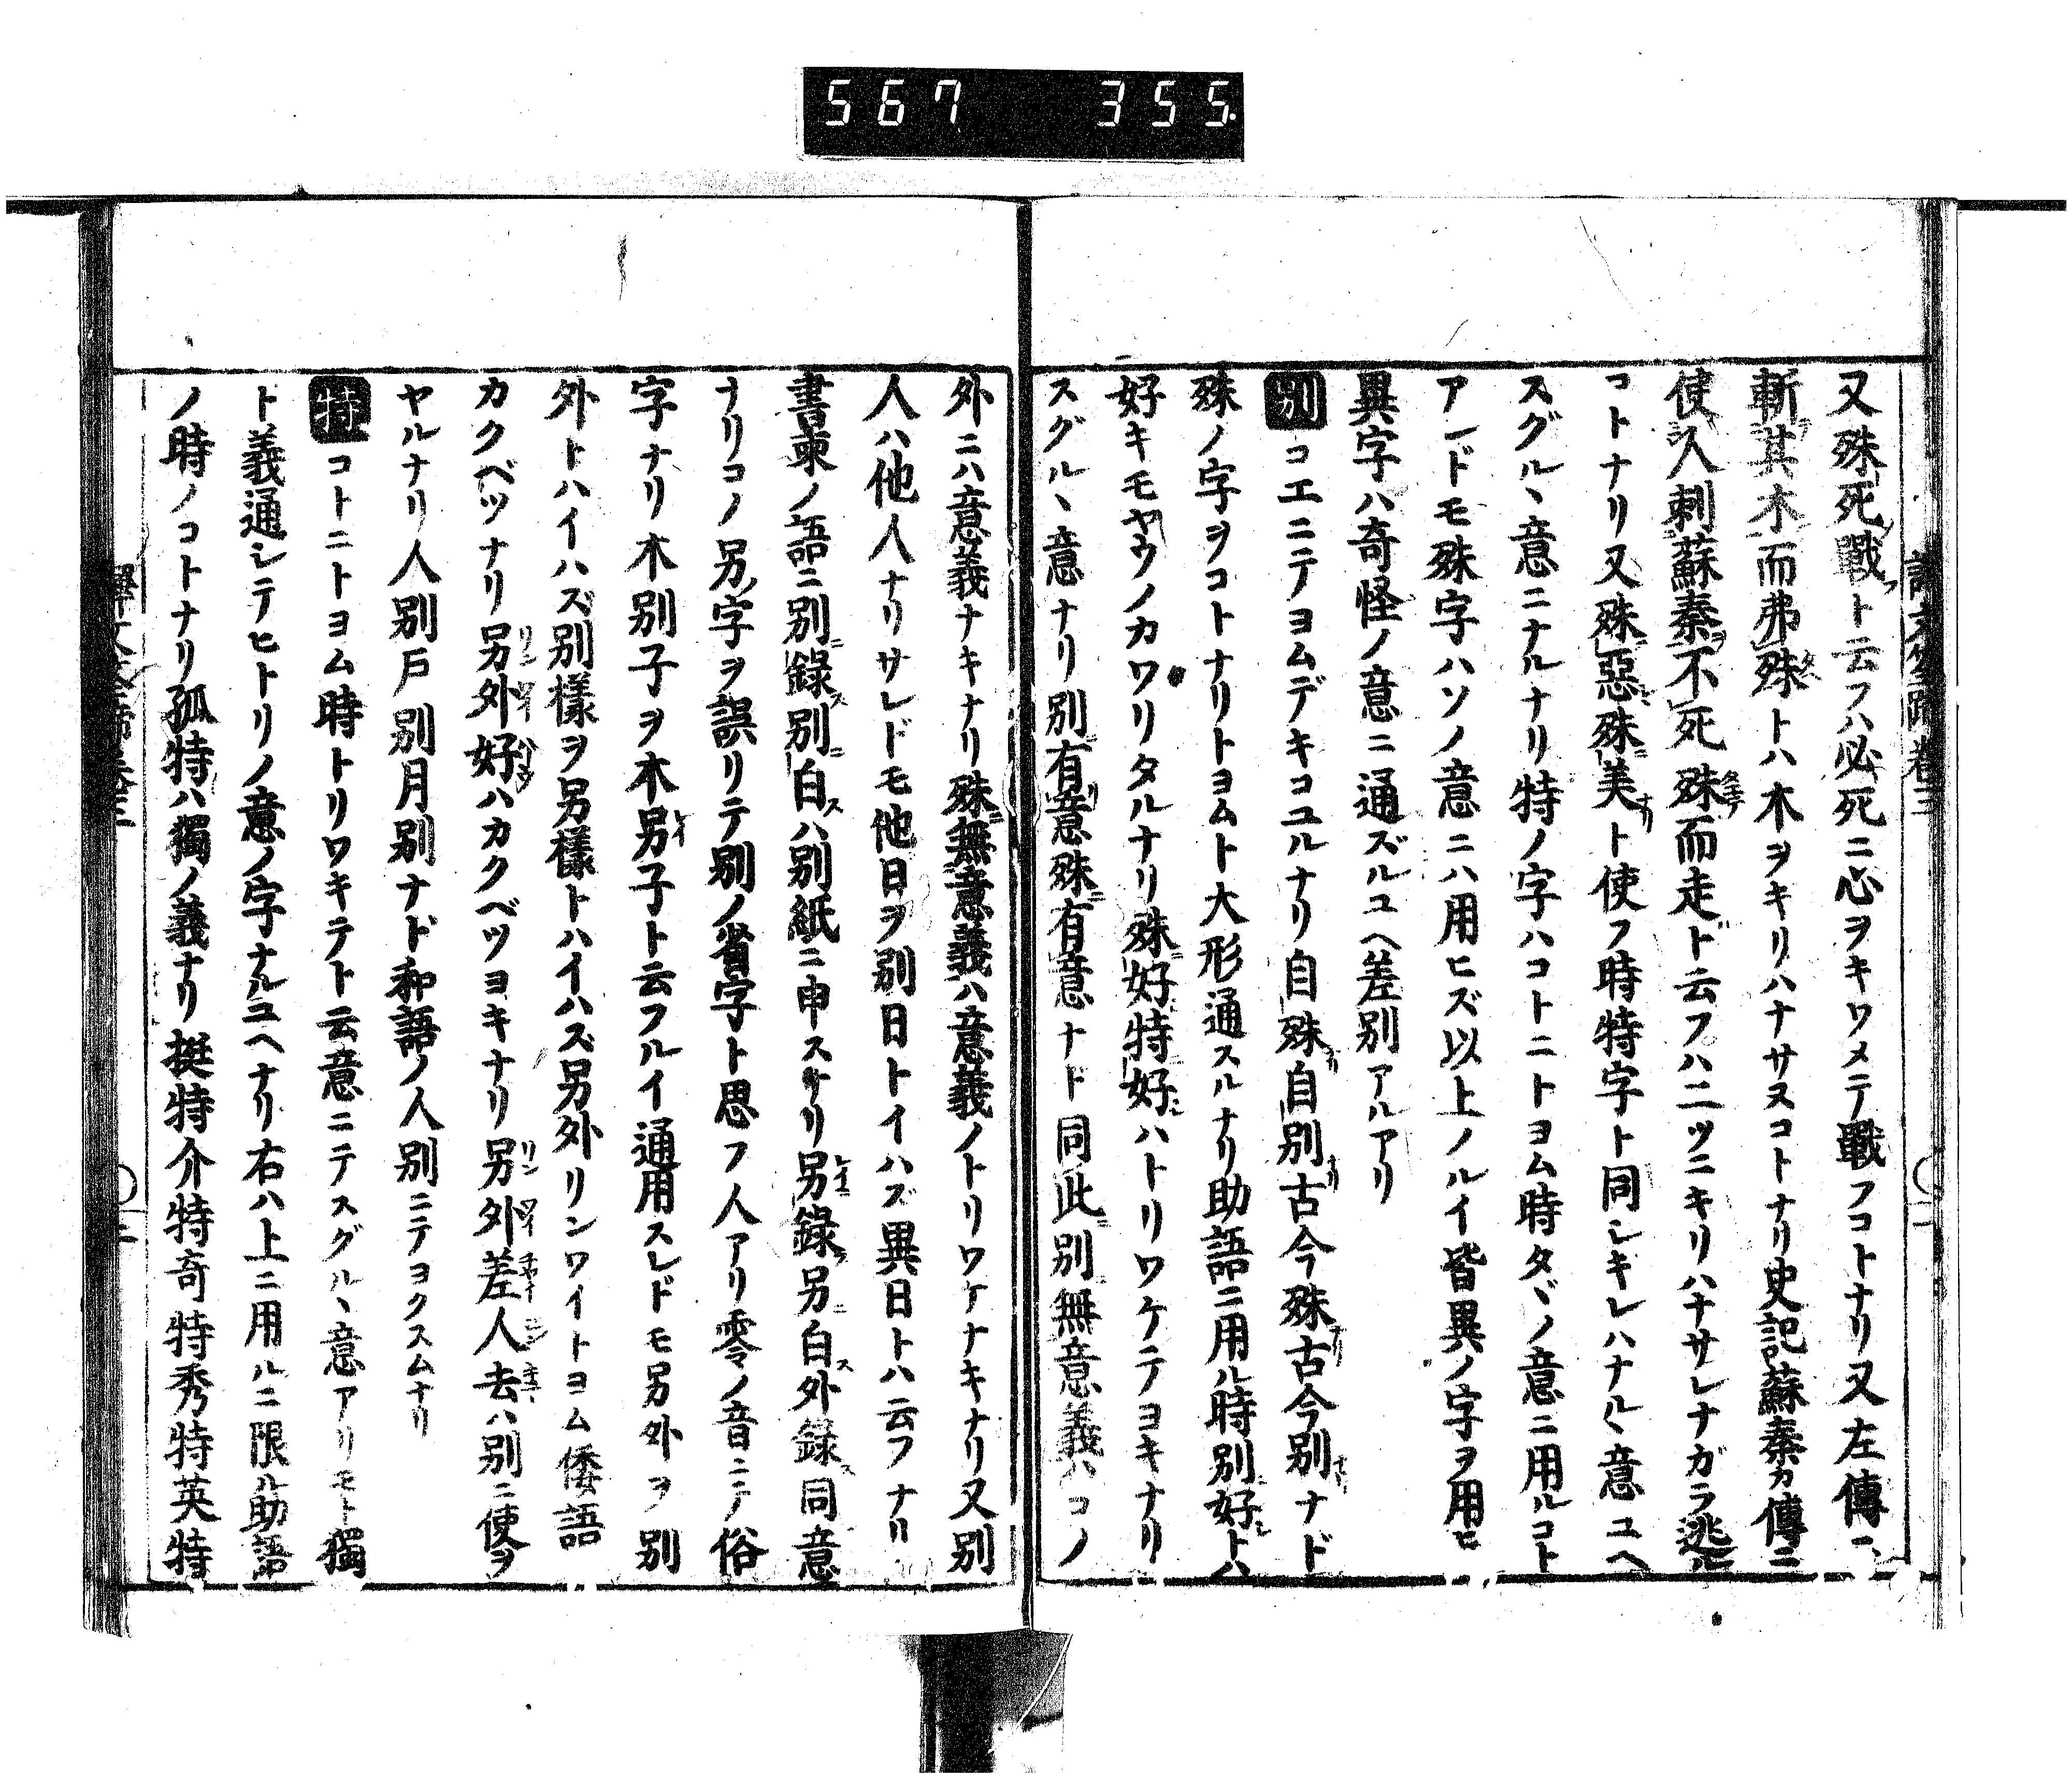 567 355
又殊死戰ト云フハ必死ニ心ヲキワメテ戰フコトナリ又左傳ニ
斬其木而弗殊トハ木ヲキリハナサヌコトナリ史記蘇秦カ傳ニ
使人刺蘇秦不死殊而走ト云フハ二ツニキリハナサレナガラ逃ル
コトナリ又殊惡殊美ト使フ時特字ト同シキレハナルヽ意ユヘ
スグルヽ意ニナルナリ特ノ字ハコトニトヨム時タヾノ意ニ用ルコト
アンドモ殊字ハソノ意ニハ用ヒズ以上ノルイ皆異ノ字ヲ用ヒ
異字ハ奇怪ノ意ニ通ズルユヘ差別アルアリ
別コエニテヨムデキコユルナリ自殊自別古今殊古今別ナド
殊ノ字ヲコトナリトヨムト大形通スルナリ助語ニ用ル時別好トハ
好キモヤウノカワリタルナリ殊好特好ハトリワケテヨキナリ
スグルヽ意ナリ別有意殊有意ナド同此別無意義ハコノ
外ニハ意義ナキナリ殊無意義ハ意義ノトリワケナキナリ又別
人ハ他人ナリサレドモ他日ヲ別日トイハズ異日トハ云フナリ
書柬ノ語ニ別錄別白ハ別紙ニ申スナリ另錄另白外錄同意
ナリコノ另字ヲ誤リテ別ノ省字ト思フ人アリ零ノ音ニテ俗
字ナリ木別子ヲ木另子ト云フルイ通用スレドモ另外ヲ別
外トハイハズ別樣ヲ另樣トハイハズ另外リンワイトヨム倭語
カクベツナリ另外好ハカクベツヨキナリ另外差人去ハ別ニ使ヲ
ヤルナリ人別戶別月別ナド和語ノ人別ニテヨクスムナリ
特コトニトヨム時トリワキテト云意ニテスグルヽ意アリモト獨
ト義通シテヒトリノ意ノ字ナルユヘナリ右ハ上ニ用ルニ限ル助語
ノ時ノコトナリ孤特ハ獨ノ義ナリ挺特介特奇特秀特英特